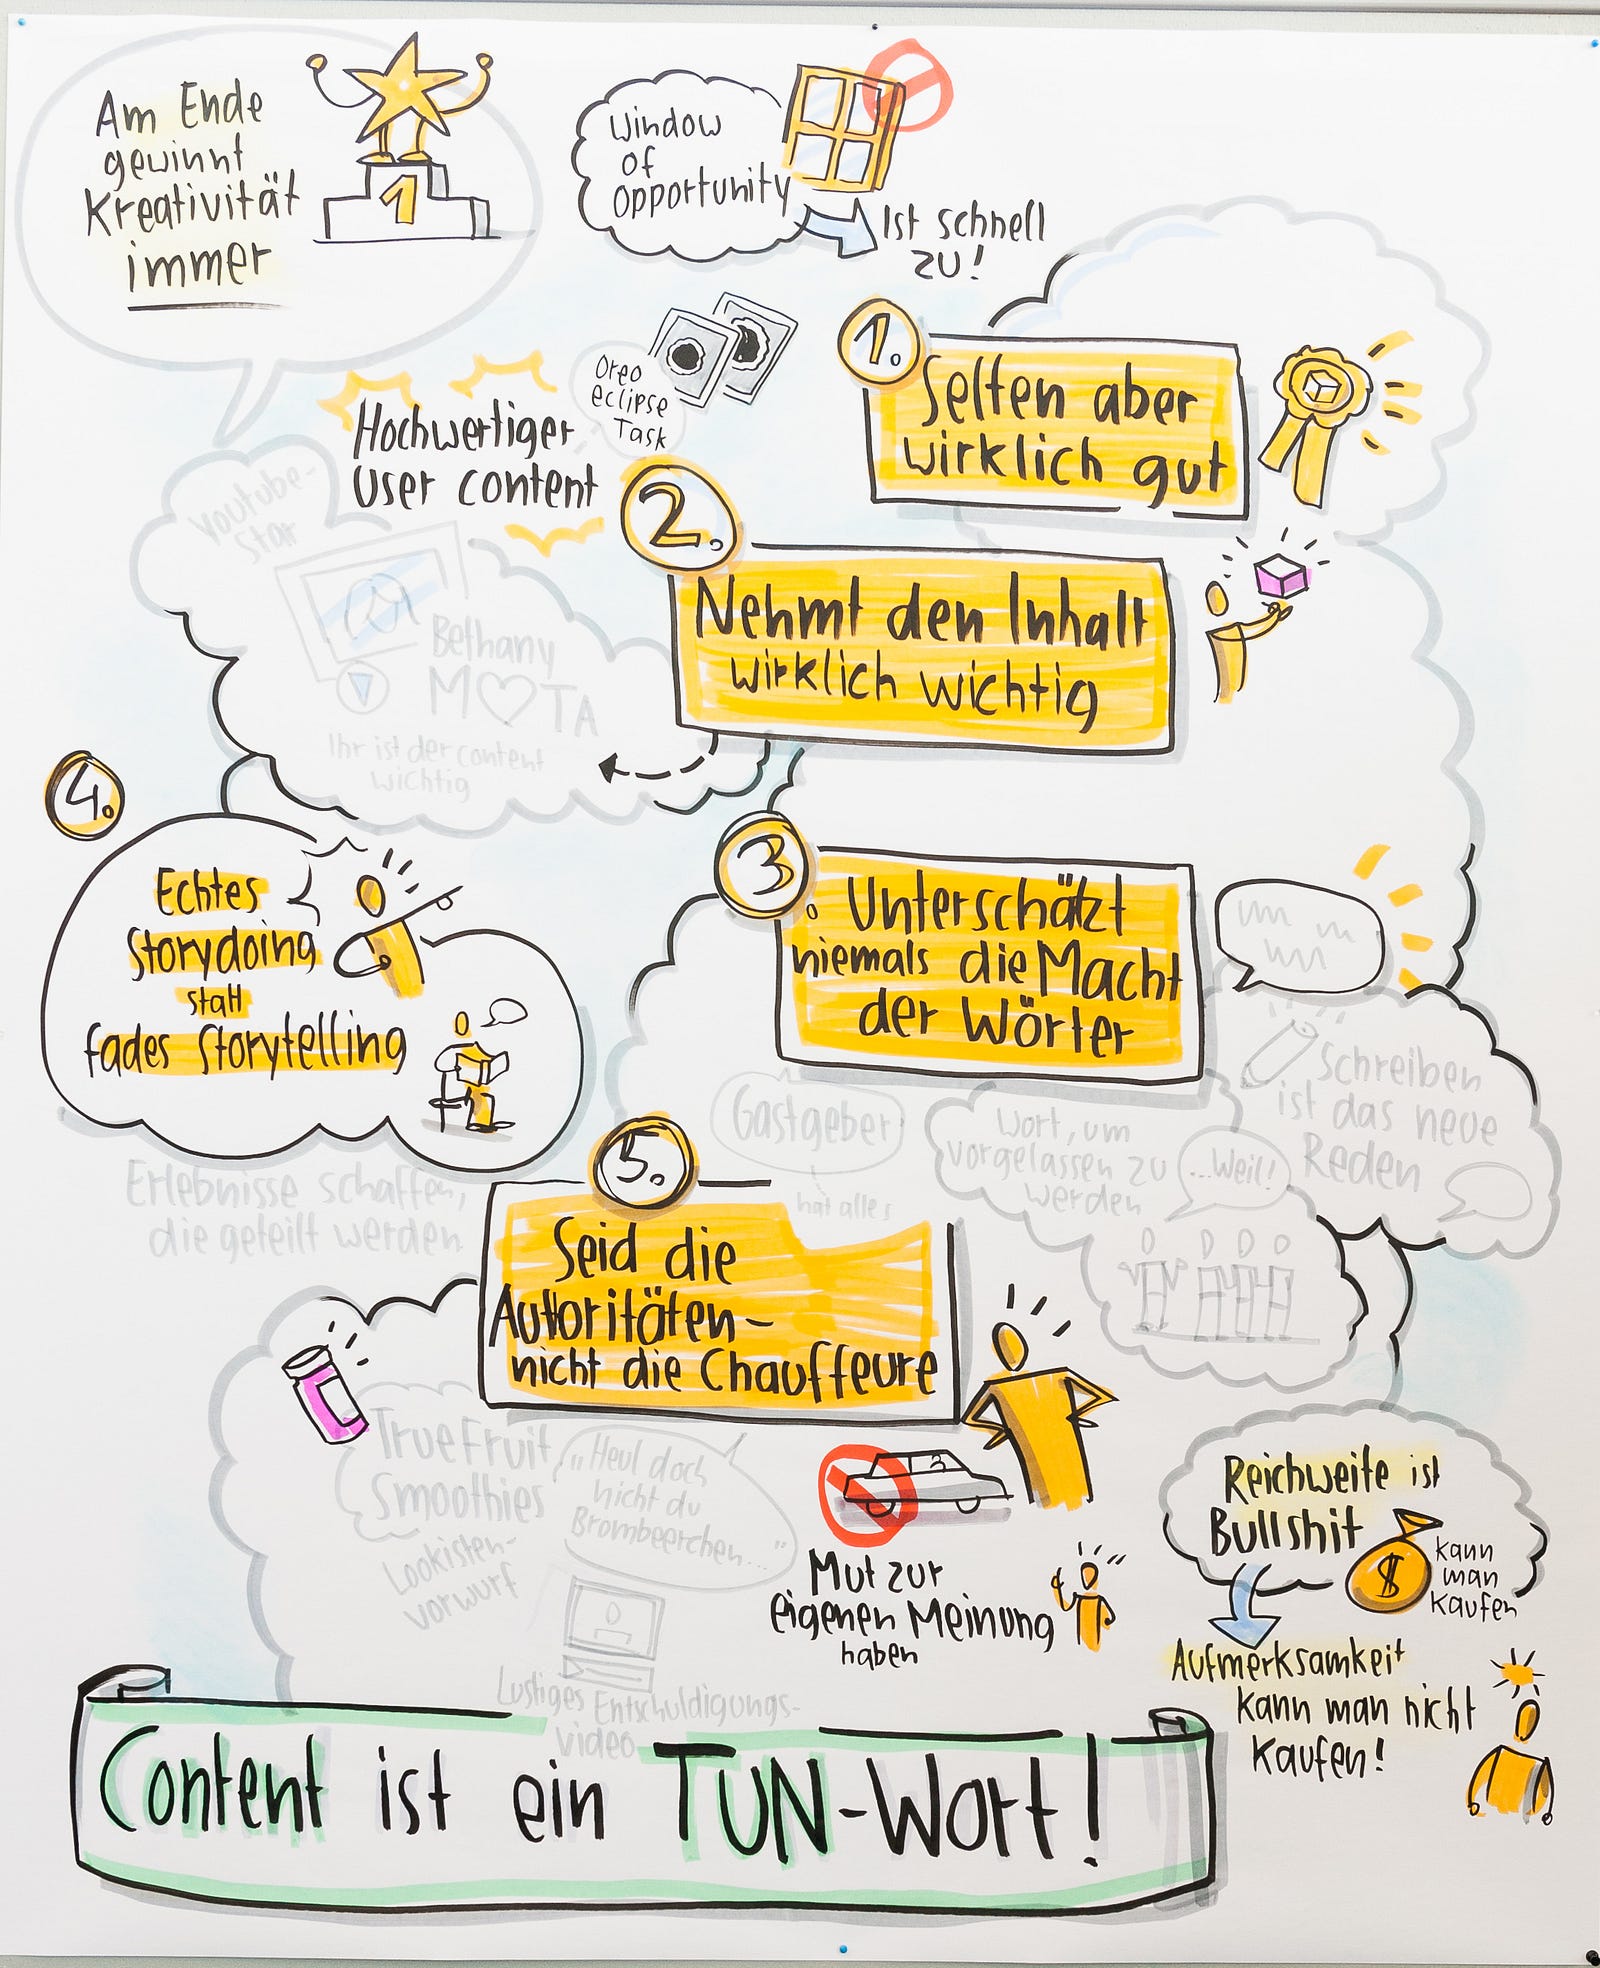 Am Ende
gewinnt
Kreativität
immer
1
Window
of
opportunity
Ist schnell
zu!
Oreo
eclipse
Task
Hochwertiger
User content
1.
Selten aber
wirklich gut
2.
Nehmt den Inhalt
wirklich wichtig
Youtube-
Star
Bethany
M♡TA
Ihr ist der content
wichtig
3.
Unterschätzt
niemals die Macht
der Wörter
Schreiben
ist das neue
Reden
Gastgeber
hat alles
Wort, um
vorgelassen zu
werden
...Weil!
4.
Echtes
Storydoing
statt
fades Storytelling
Erlebnisse schaffen,
die geteilt werden
5.
Seid die
Autoritäten-
nicht die Chauffeure
TrueFruit
Smoothies
Lookisten-
vorwurf
„Heul doch
nicht du
Brombeerchen..."
Lustiges Entschuldigungs-
video
Mut zur
eigenen Meinung
haben
Reichweite ist
Bullshit
$
kann
man
kaufen
Aufmerksamkeit
kann man nicht
kaufen!
Content ist ein TUN-Wort!